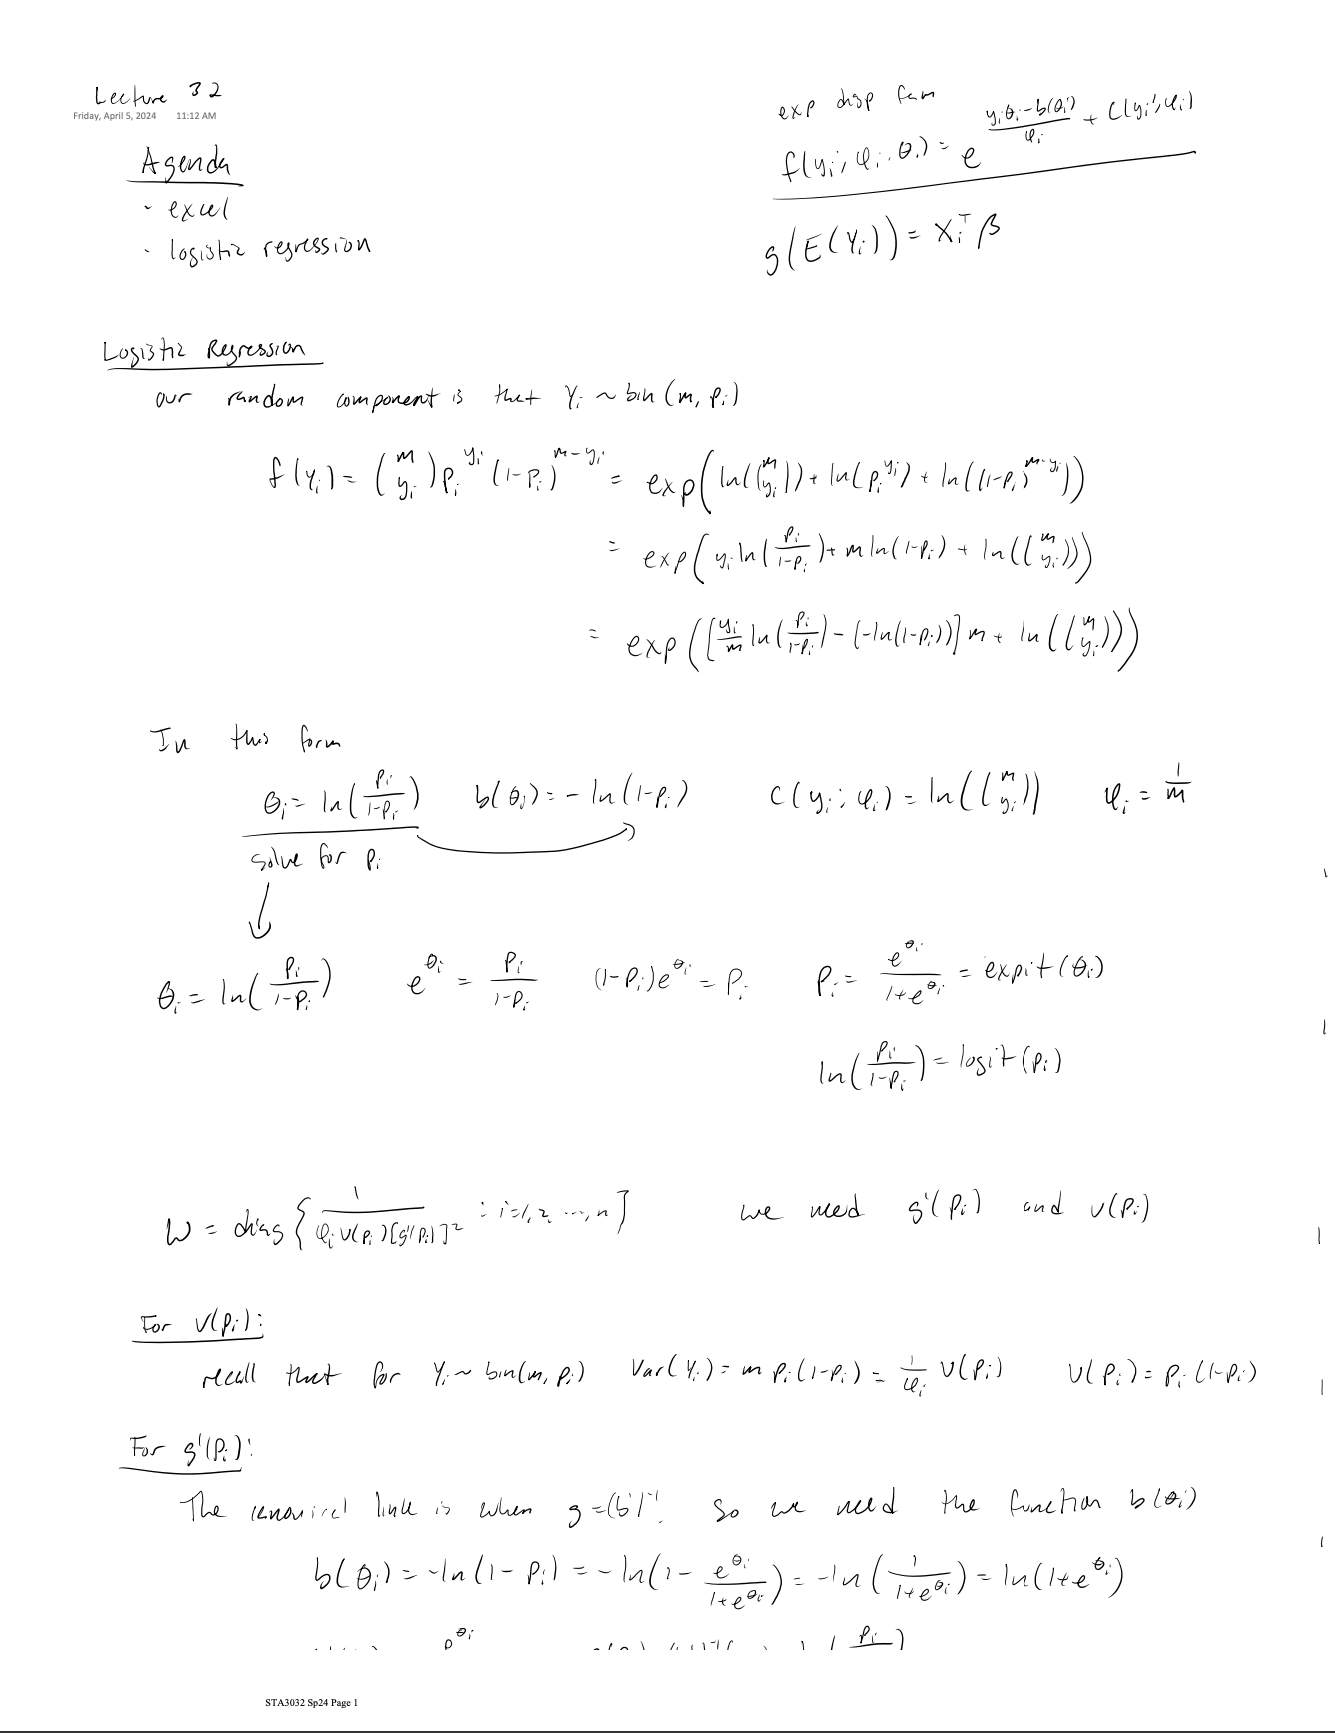 Lecture 32
Friday, April 5, 2024 11:12 AM
Agenda
- excel
- logistic regression
exp disp fam
f(yᵢ; φᵢ, θᵢ) = e^((yᵢθᵢ - b(θᵢ))/φᵢ + C(yᵢ; φᵢ))
g(E(Yᵢ)) = Xᵢᵀβ
Logistic Regression
our random component is that Yᵢ ~ bin(m, pᵢ)
f(yᵢ) = (m yᵢ) pᵢ^(yᵢ) (1-pᵢ)^(m-yᵢ) = exp(ln((m yᵢ)) + ln(pᵢ^(yᵢ)) + ln((1-pᵢ)^(m-yᵢ)))
= exp(yᵢ ln(pᵢ/(1-pᵢ)) + m ln(1-pᵢ) + ln((m yᵢ)))
= exp([yᵢ/m ln(pᵢ/(1-pᵢ)) - (-ln(1-pᵢ))] m + ln((m yᵢ)))
In this form
θᵢ = ln(pᵢ/(1-pᵢ)) b(θᵢ) = - ln(1-pᵢ) C(yᵢ; φᵢ) = ln((m yᵢ)) φᵢ = 1/m
solve for pᵢ
θᵢ = ln(pᵢ/(1-pᵢ)) e^(θᵢ) = pᵢ/(1-pᵢ) (1-pᵢ)e^(θᵢ) = pᵢ pᵢ = e^(θᵢ)/(1+e^(θᵢ)) = expit(θᵢ)
ln(pᵢ/(1-pᵢ)) = logit(pᵢ)
W = diag{1/(φᵢ V(pᵢ)[g'(pᵢ)]²) : i=1, 2, ..., n} we need g'(pᵢ) and V(pᵢ)
For V(pᵢ):
recall that for Yᵢ ~ bin(m, pᵢ) Var(Yᵢ) = m pᵢ(1-pᵢ) = 1/φᵢ V(pᵢ) V(pᵢ) = pᵢ(1-pᵢ)
For g'(pᵢ):
The canonical link is when g = (b')⁻¹. So we need the function b(θᵢ)
b(θᵢ) = -ln(1-pᵢ) = -ln(1 - e^(θᵢ)/(1+e^(θᵢ))) = -ln(1/(1+e^(θᵢ))) = ln(1+e^(θᵢ))
STA3032 Sp24 Page 1